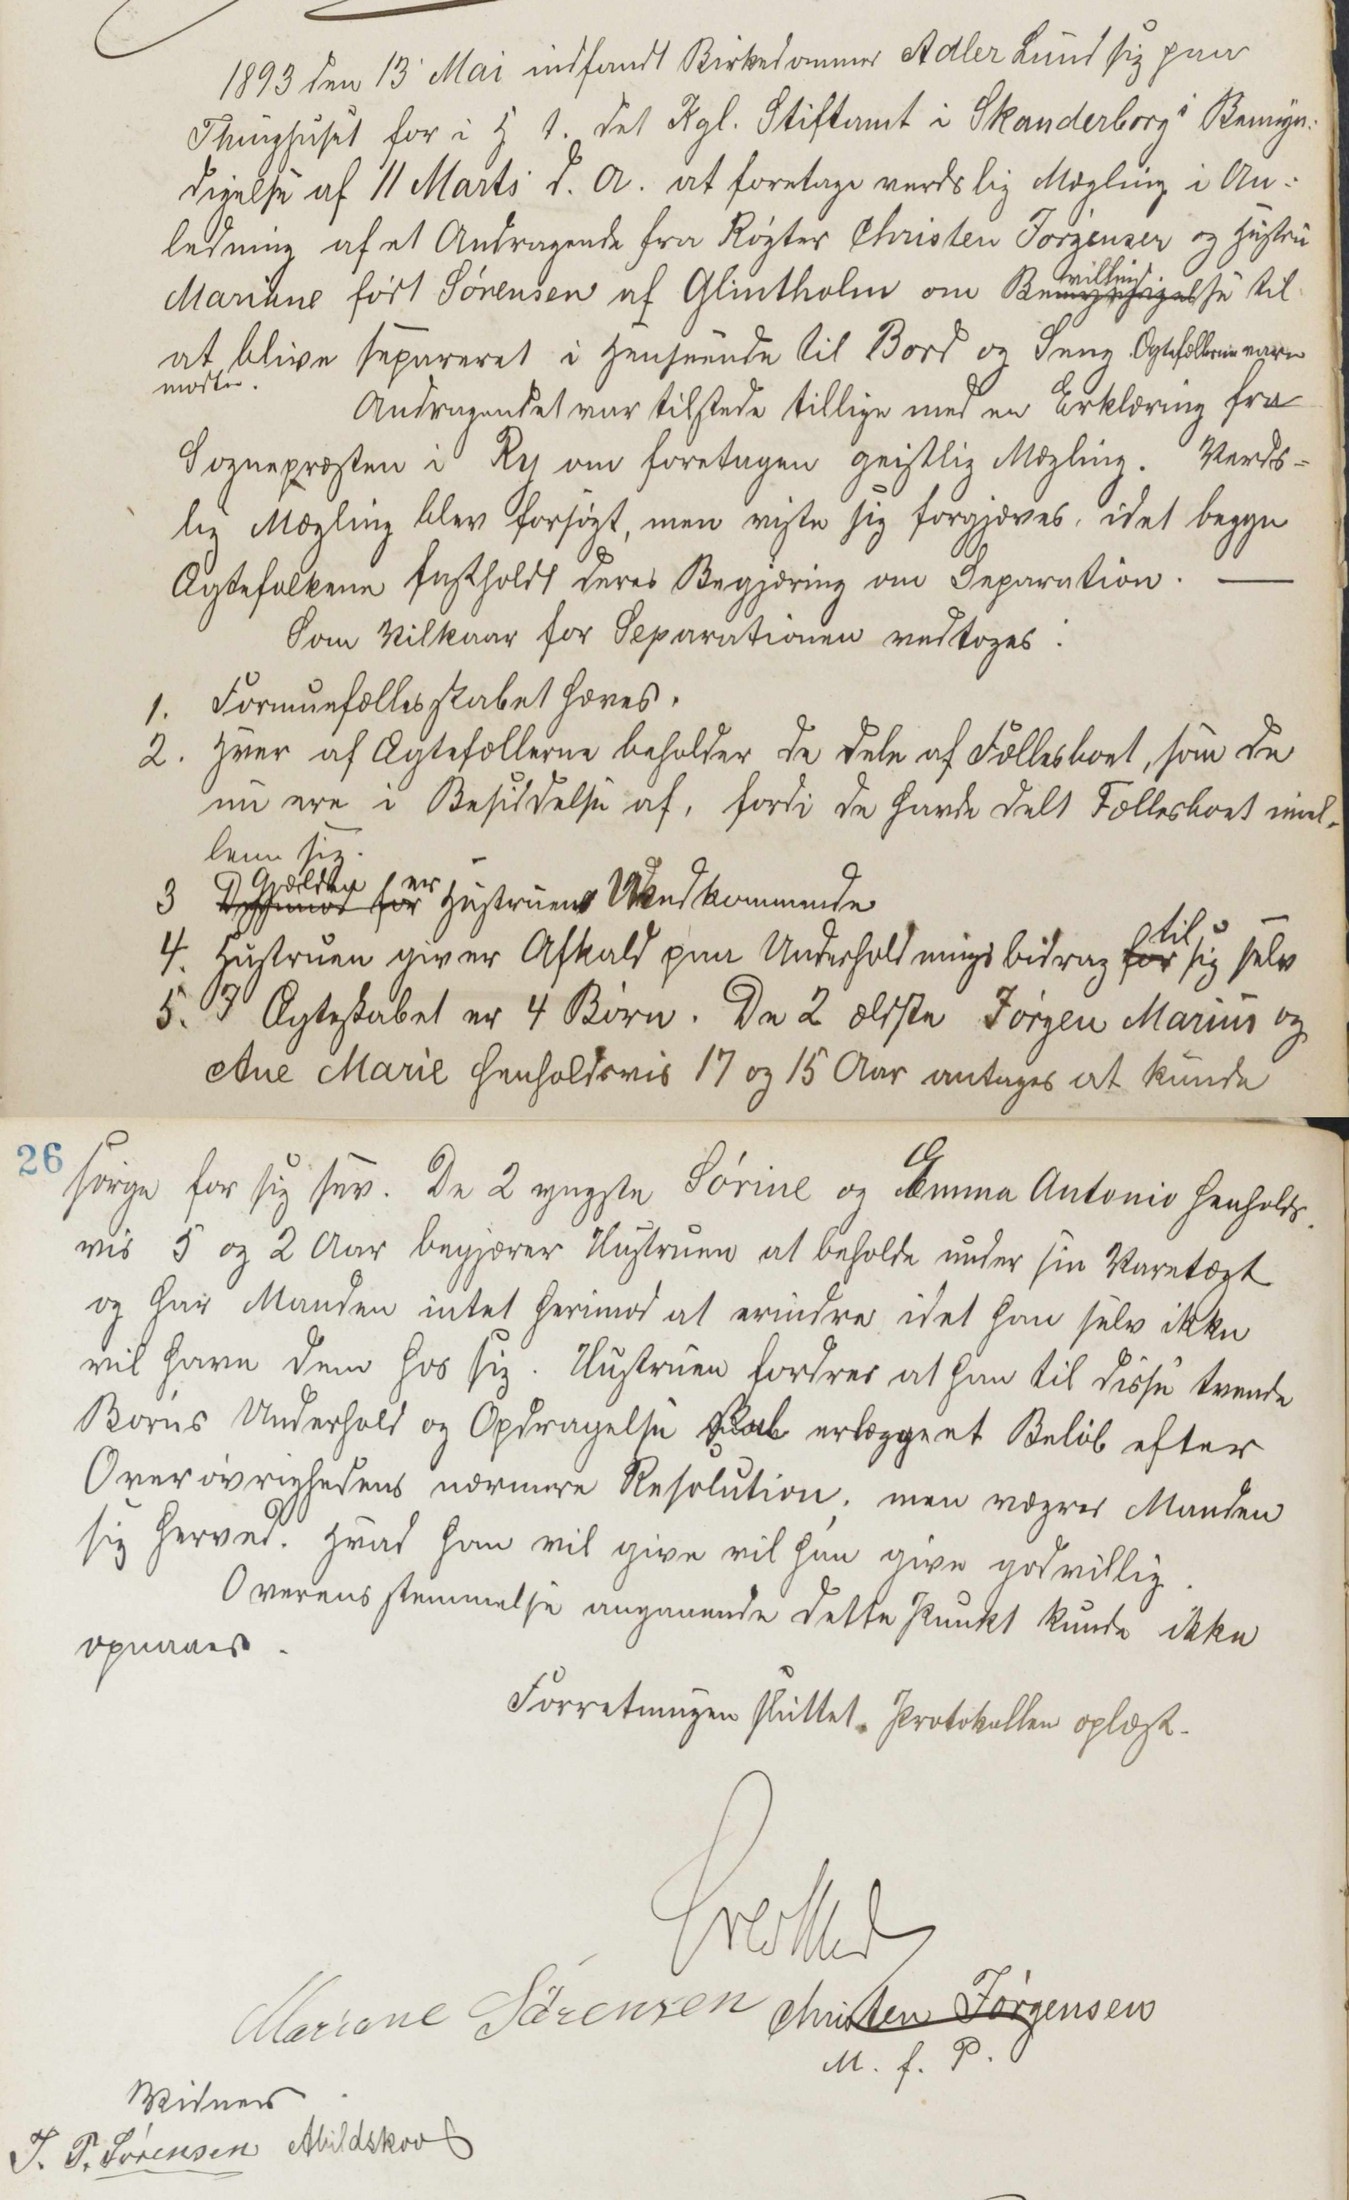 1893 den 13 Mai indfandt Birkedommer Adler Lund sig paa
Thinghuset for i H. t. det Kgl. Stiftamt i Skanderborgs Bemyn-
digelse af 11 Marts d. A. at foretage verdslig Mægling i An-
ledning af et Andragende fra Røgter Christen Jørgensen og Hustru
Mariane født Sørensen af Glintholm om Bevilling til
at blive separeret i Henseende til Bord og Seng. Ægtefællerne vare
mødte.
Andragendet var tilstede tillige med en Erklæring fra
Sognepræsten i Ry om foretagen geistlig Mægling. Verds-
lig Mægling blev forsøgt, men viste sig forgjæves, idet begge
Ægtefolkene fastholdt deres Begjæring om Separation. —
Som Vilkaar for Separationen vedtoges:
1. Formuefællesskabet hæves.
2. Hver af Ægtefællerne beholder de Dele af Fællesboet, som de
nu ere i Besiddelse af, fordi de havde delt Fællesboet imel-
lem sig.
3 Gjælden er Hustruen Uvedkommende
4. Hustruen giver Afkald paa Underholdningsbidrag til sig selv
5. I Ægteskabet er 4 Børn. De 2 ældste Jørgen Marius og
Ane Marie henholdsvis 17 og 15 Aar antages at kunde
26
sørge for sig sev. De 2 yngste Sørine og Emma Antonio henholds-
vis 5 og 2 Aar begjærer Hustruen at beholde under sin Varetægt
og har Manden intet herimod at erindre idet han selv ikke
vil have dem hos sig. Hustruen fordrer at han til disse tvende
Børns Underhold og Opdragelse skal erlægge et Beløb efter
Overøvrighedens nærmere Resolution, men vægrer Manden
sig herved. Hvad han vil give vil han give godvillig.
Overensstemmelse angaaende dette Punkt kunde ikke
opnaaes.
Forretningen sluttet. Protokollen oplæst.
Mariane Sørensen Christen Jørgensen
M. f. P.
Vidner
J. P. Sørensen Abildskov